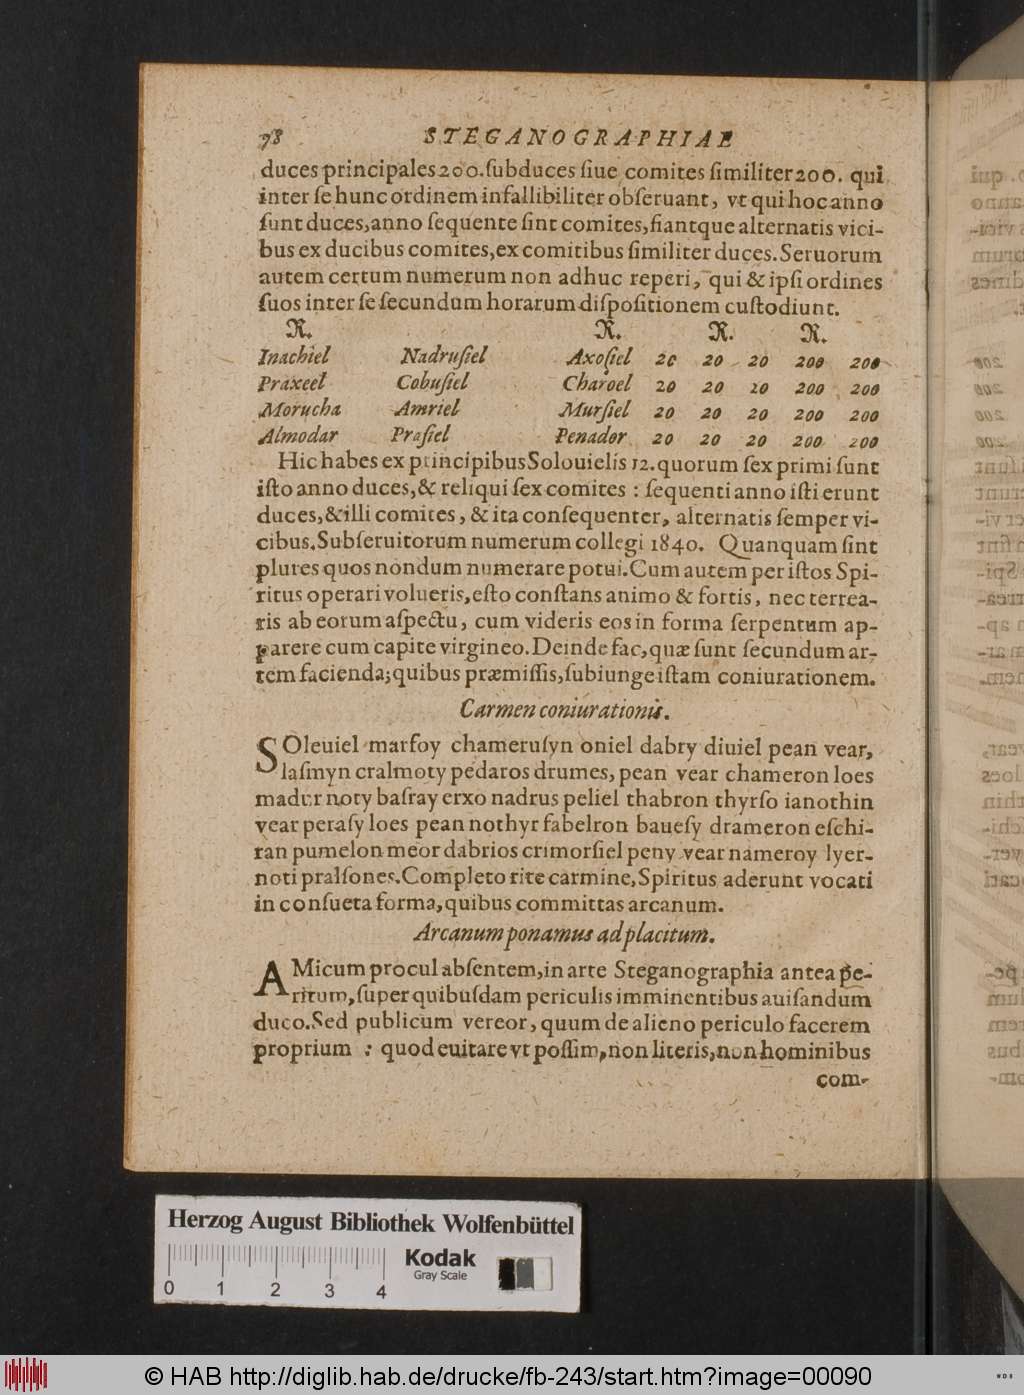 78 STEGANOGRAPHIAE
duces principales 200. ſubduces ſiue comites ſimiliter 200. qui
inter ſe hunc ordinem infallibiliter obſeruant, vt qui hoc anno
ſunt duces, anno ſequente ſint comites, fiantque alternatis vici-
bus ex ducibus comites, ex comitibus ſimiliter duces. Seruorum
autem certum numerum non adhuc reperi, qui & ipſi ordines
ſuos inter ſe ſecundum horarum diſpoſitionem cuſtodiunt.
R. R. R. R.
Inachiel Nadruſiel Axoſiel 20 20 20 200 200
Praxeel Cobuſiel Charoel 20 20 20 200 200
Morucha Amriel Murſiel 20 20 20 200 200
Almodar Praſiel Penador 20 20 20 200 200
Hic habes ex principibus Solouielis 12. quorum ſex primi ſunt
iſto anno duces, & reliqui ſex comites : ſequenti anno iſti erunt
duces, & illi comites, & ita conſequenter, alternatis ſemper vi-
cibus. Subſeruitorum numerum collegi 1840. Quanquam ſint
plures quos nondum numerare potui. Cum autem per iſtos Spi-
ritus operari volueris, eſto conſtans animo & fortis, nec terrea-
ris ab eorum aſpectu, cum videris eos in forma ſerpentum ap-
parere cum capite virgineo. Deinde fac, quæ ſunt ſecundum ar-
tem facienda; quibus præmiſſis, ſubiunge iſtam coniurationem.
Carmen coniurationis.
SOleuiel marfoy chameruſyn oniel dabry diuiel pean vear,
laſmyn cralmoty pedaros drumes, pean vear chameron loes
madur noty baſray erxo nadrus peliel thabron thyrſo ianothin
vear peraſy loes pean nothyr fabelron baueſy drameron eſchi-
ran pumelon meor dabrios crimorſiel peny vear nameroy lyer-
noti pralſones. Completo rite carmine, Spiritus aderunt vocati
in conſueta forma, quibus committas arcanum.
Arcanum ponamus ad placitum.
AMicum procul abſentem, in arte Steganographia antea pe-
ritum, ſuper quibuſdam periculis imminentibus auiſandum
duco. Sed publicum vereor, quum de alieno periculo facerem
proprium : quod euitare vt poſſim, non literis, non hominibus
com-
Herzog August Bibliothek Wolfenbüttel
Kodak
Gray Scale
0 1 2 3 4
© HAB http://diglib.hab.de/drucke/fb-243/start.htm?image=00090